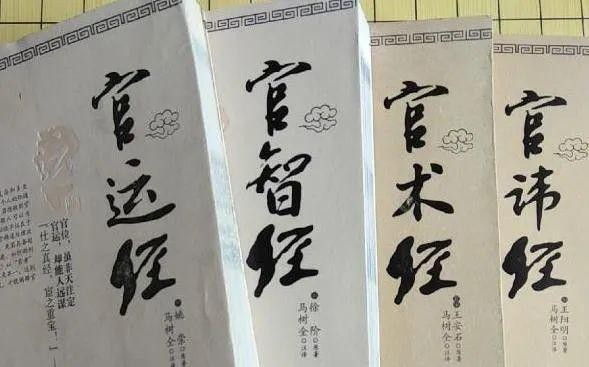 官运经
官位，虽非天注定
官运，却能人远谋
一仕之真经，宦之重宝！一
姚崇 原著
马树全 注译
官智经
徐阶 原著
马树全 注译
官术经
王安石 原著
马树全 注译
官讳经
王阳明 原著
马树全 注译